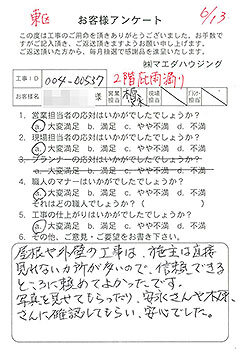 東区
お客様アンケート
6/13
この度は工事のご用命を頂きありがとうございました。お手数で
すがご記入頂き、ご返送頂きますようお願い申し上げます。
ご返送頂いた方から、毎月抽選で感謝品を進呈いたします。
㈱マエダハウジング
工事ID 004-00537 2階庇雨漏り
お客様名 様 営業担当 工事担当
1. 営業担当者の応対はいかがでしたでしょうか?
a.大変満足 b.満足 c.やや不満 d.不満
2. 現場担当者の応対はいかがでしたでしょうか?
a.大変満足 b.満足 c.やや不満 d.不満
3. プランナーの応対はいかがでしたでしょうか?
a.大変満足 b.満足 c.やや不満 d.不満
4. 職人のマナーはいかがでしたでしょうか?
a.大変満足 b.満足 c.やや不満 d.不満
それはどの職人でしょう( )
5. 工事の仕上がりはいかがでしたでしょうか?
a.大変満足 b.満足 c.やや不満 d.不満
6. その他、ご意見・ご要望をお書き下さい。
屋根や外壁の工事は、施主は直接
見れないカ所が多いので、信頼できる
ところに頼めてよかったです。
写真を見せてもらったり、安永さんや
さんに確認してもらい、安心でした。